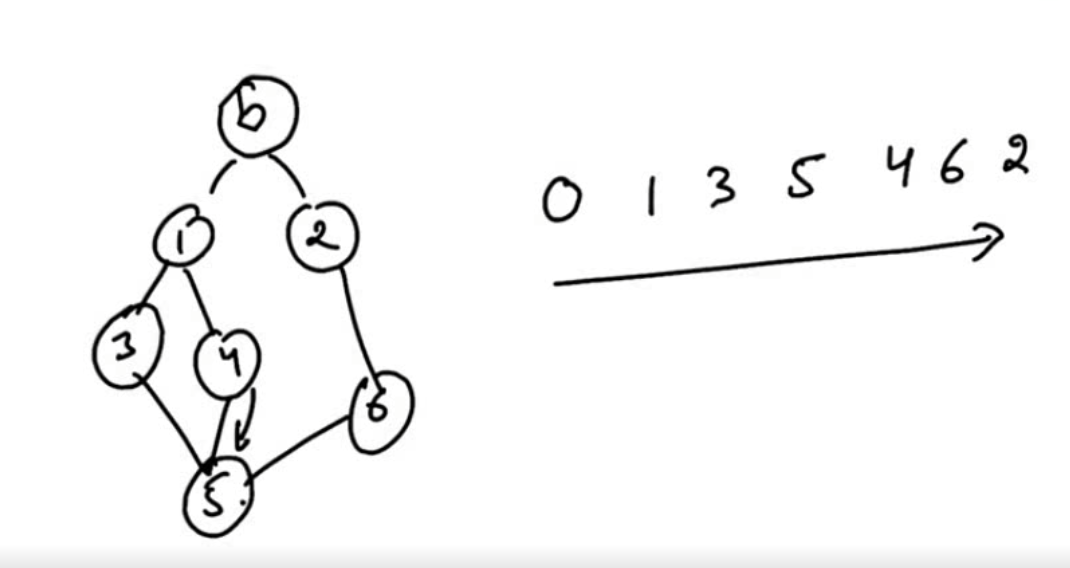 0
1 2
3 4
6
5
0 1 3 5 4 6 2